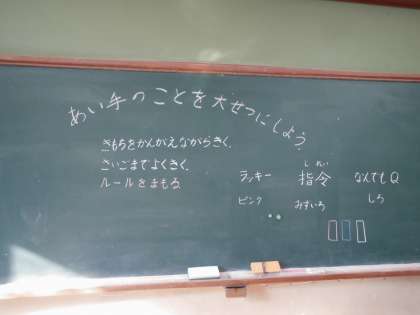 あい手のことを大せつにしよう
きもちをかんがえながらきく.
さいごまでよくきく.
ルールをまもる
しれい
ラッキー 指令 なんでもQ
ピンク みずいろ しろ